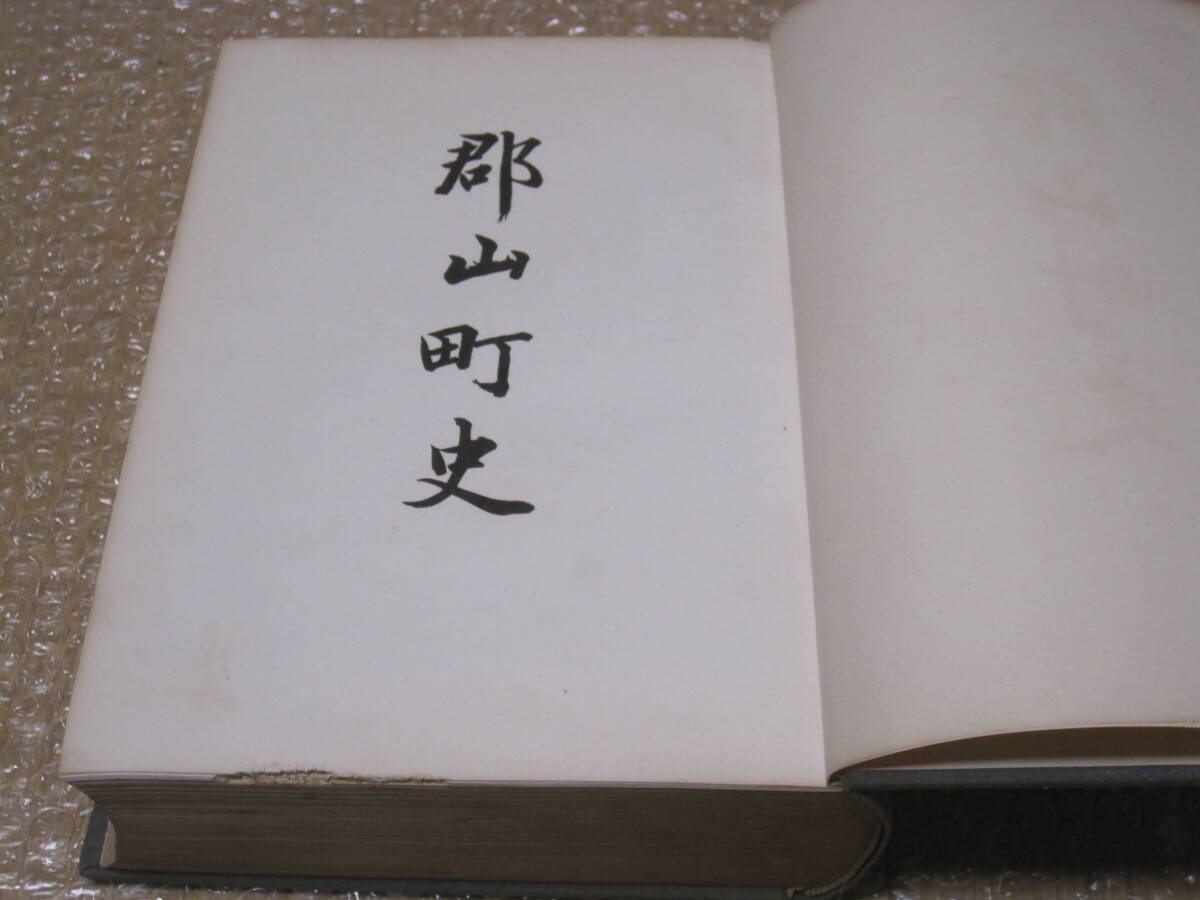 郡山町史